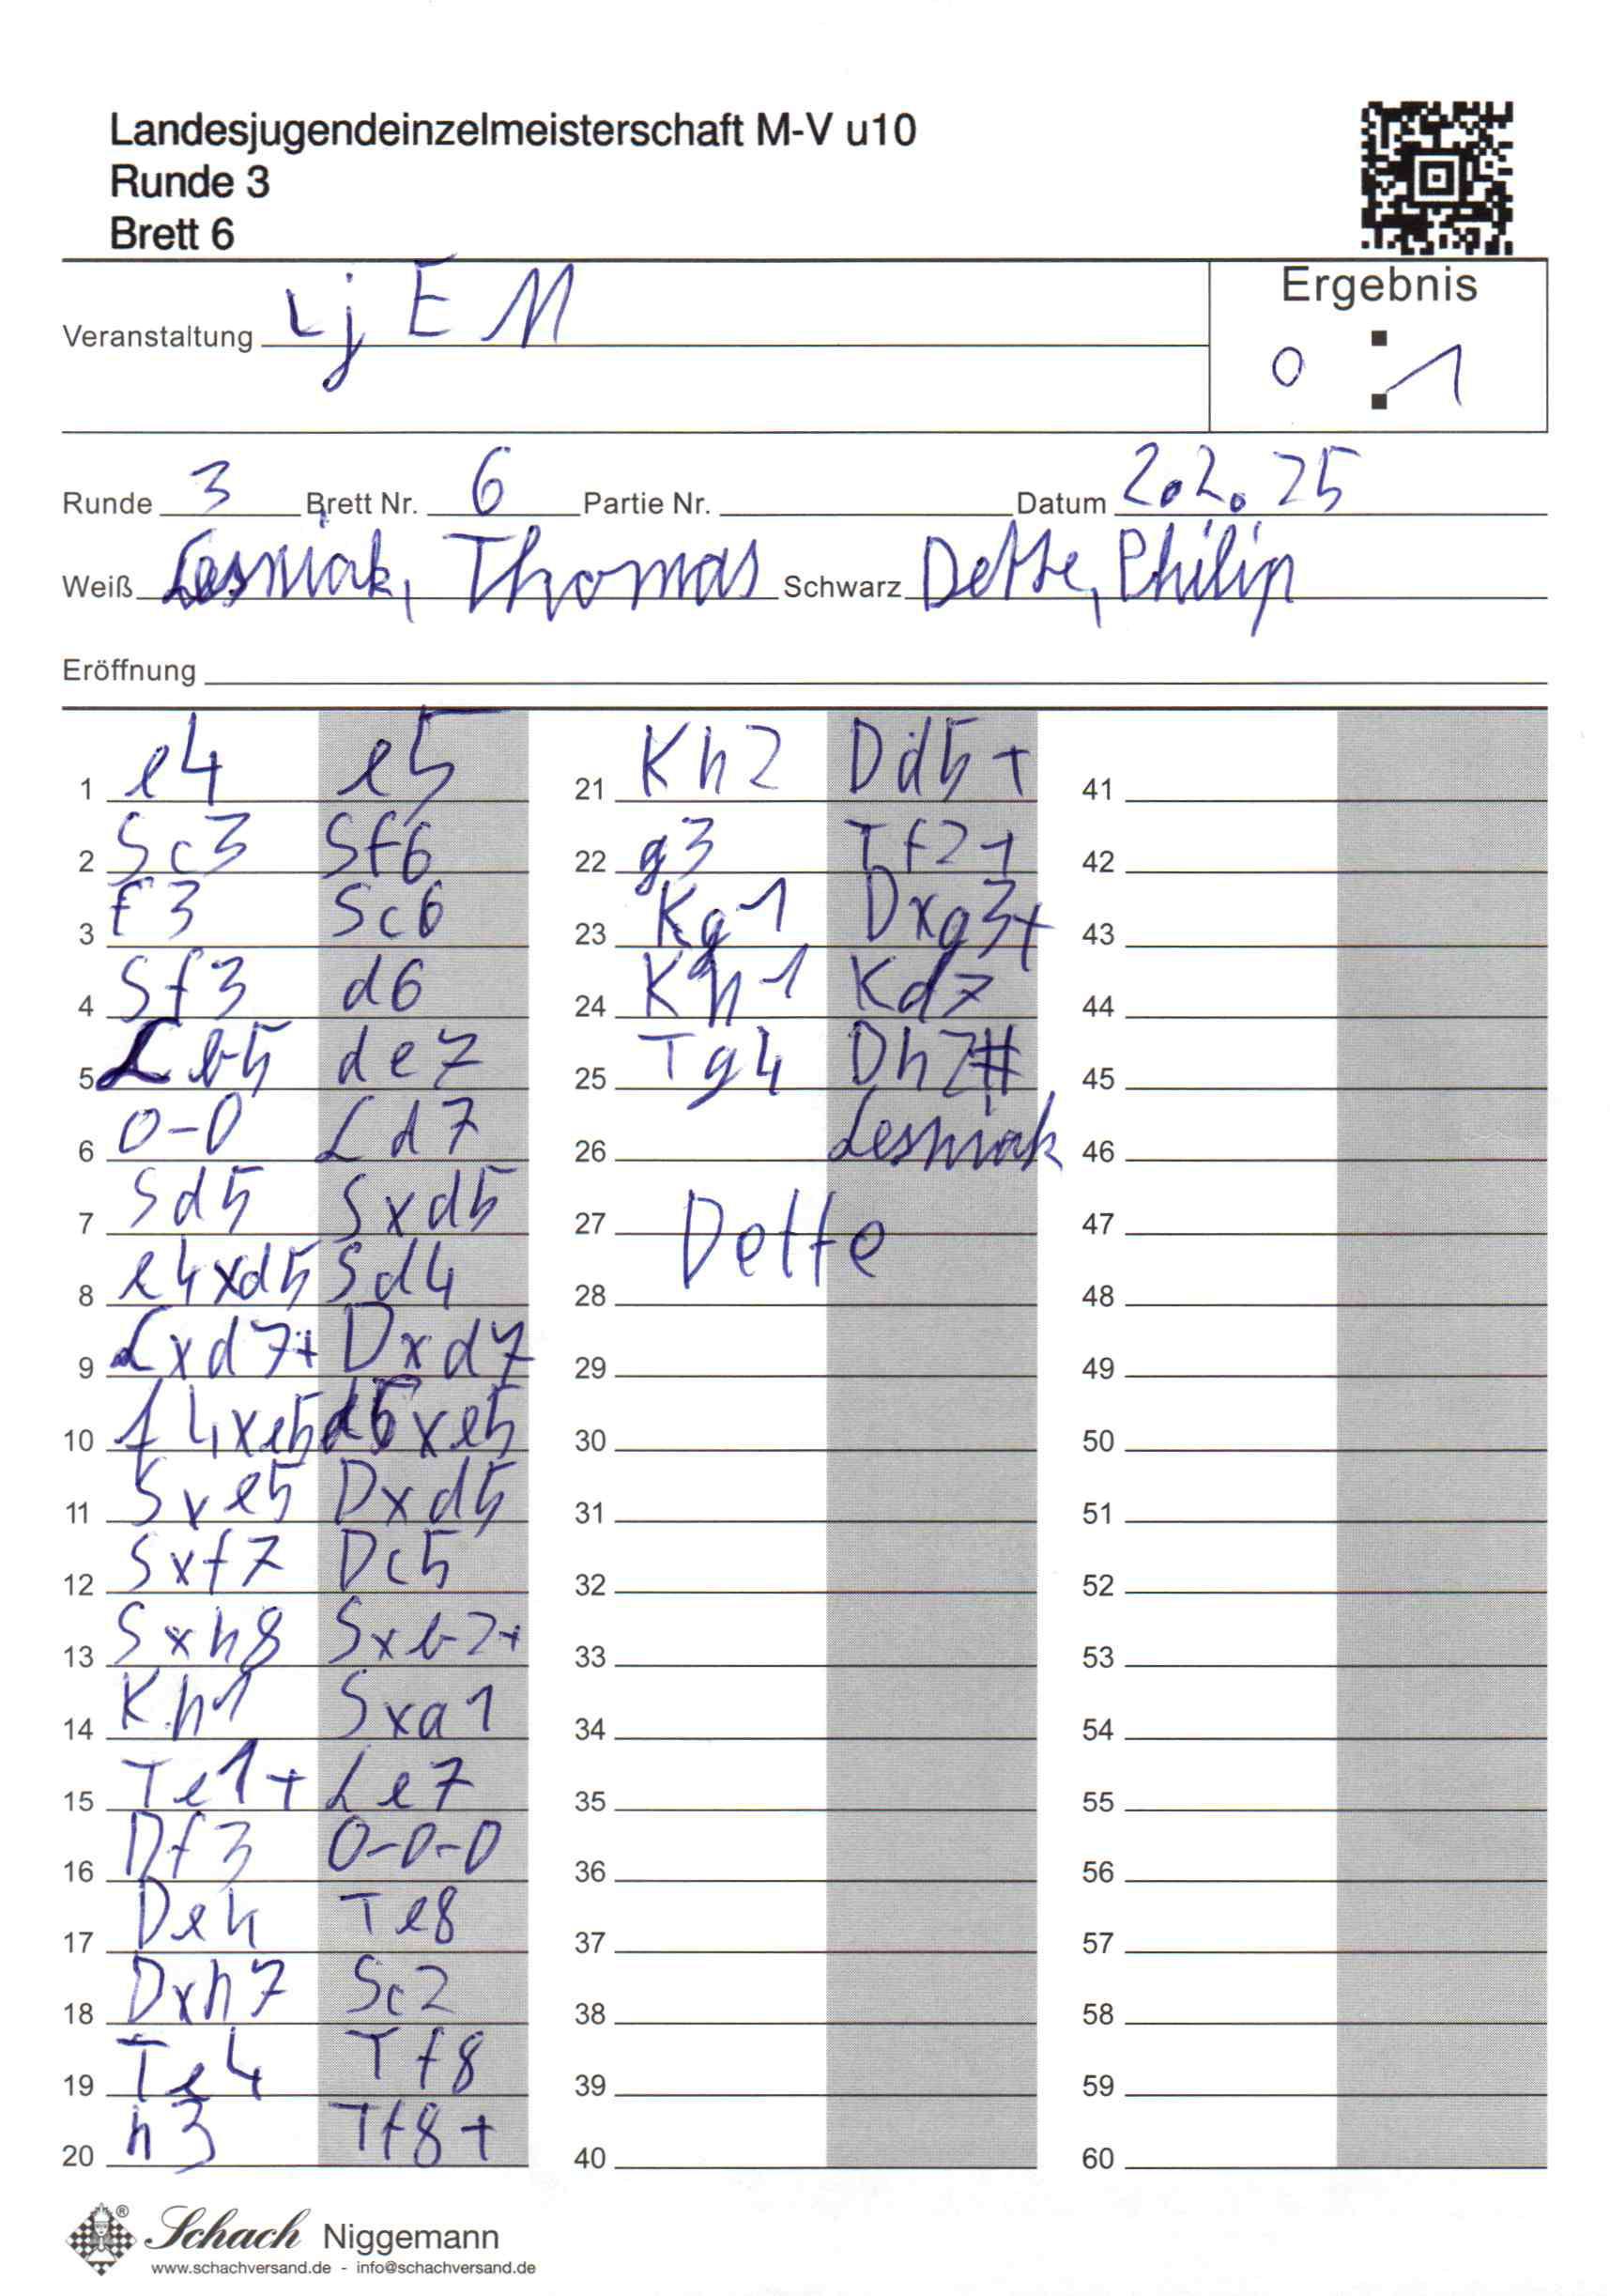 Landesjugendeinzelmeisterschaft M-V u10
Runde 3
Brett 6
Veranstaltung LjEM
Ergebnis
0 : 1
Runde 3 Brett Nr. 6 Partie Nr. Datum 2.2.25
Weiß Lesniak, Thomas Schwarz Dette, Philip
Eröffnung
1 e4 e5
2 Sc3 Sf6
3 f3 Sc6
4 Sf3 d6
5 Lb5 de7
6 0-0 Ld7
7 Sd5 Sxd5
8 e4xd5 Sd4
9 Lxd7+ Dxd7
10 f4xe5 d6xe5
11 Sxe5 Dxd5
12 Sxf7 Dc5
13 Sxh8 Sxb2+
14 Kh1 Sxa1
15 Te1+ Le7
16 Df3 0-0-0
17 De4 Te8
18 Dxh7 Sc2
19 Te4 Tf8
20 h3 Tf8+
21 Kh2 Dd5+
22 g3 Tf2+
23 Kg1 Dxg3+
24 Kh1 Kd7
25 Tg4 Dh2#
26 Lesniak
27 Dette
28
29
30
31
32
33
34
35
36
37
38
39
40
41
42
43
44
45
46
47
48
49
50
51
52
53
54
55
56
57
58
59
60
Schach Niggemann
www.schachversand.de - info@schachversand.de